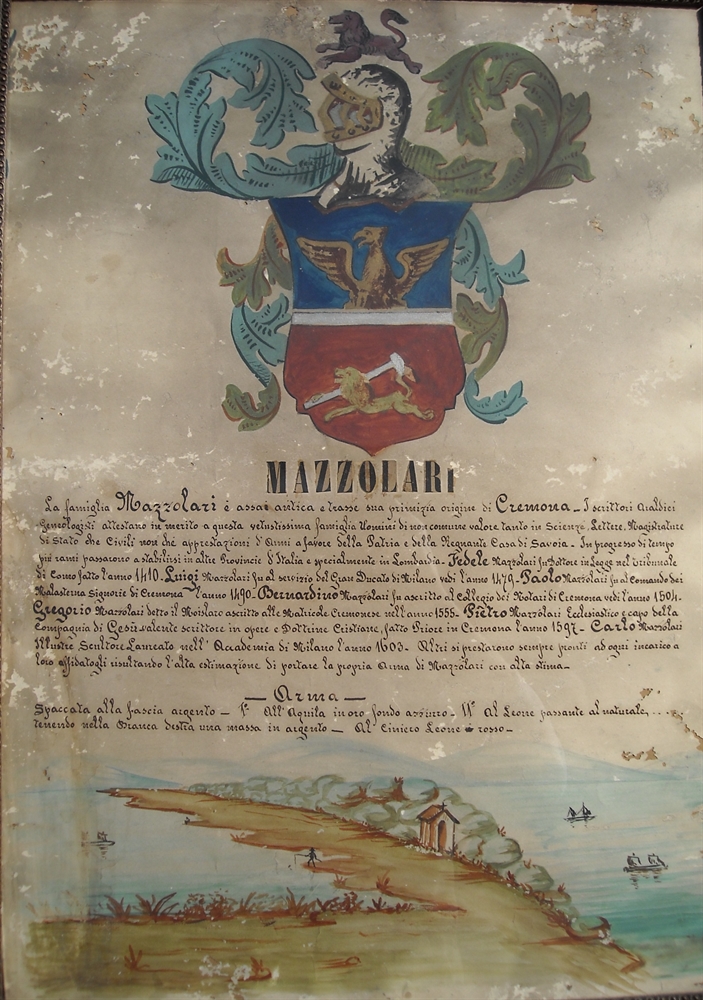 MAZZOLARI
La famiglia Mazzolari è assai antica e trasse sua primizia origine di Cremona_ I scrittori Araldici
Geneologisti attestano in merito a questa vetustissima famiglia Uomini di non comune valore tanto in Scienze, Lettere, Magistrature
di Stato che Civili non ché apprestazioni d'Armi a favore della Patria e della Regnante Casa di Savoia_ In progresso di tempo
più rami passarono a stabilirsi in altre Provincie d'Italia e specialmente in Lombardia_ Fedele Mazzolari fu Dottore in Legge nel tribunale
di Como fatto l'anno 1410_ Luigi Mazzolari fu al servizio del Gran Ducato di Milano vedi l'anno 1479_ Paolo Mazzolari fu al Comando dei
Malasterna Signorie di Cremona l'anno 1490_ Bernardino Mazzolari fu ascritto al Collegio dei Notari di Cremona vedi l'anno 1504_
Gregorio Mazzolari detto il ascritto alle Matricole Cremonese nell'anno 1555_ Pietro Mazzolari Ecclesiastico e capo della
Compagnia di Gesù valente scrittore in opere e Dottrine Cristiane, fatto Priore in Cremona l'anno 1597_ Carlo Mazzolari
Illustre Scultore Laureato nell'Accademia di Milano l'anno 1603_ Altri si prestarono sempre pronti ad ogni incarico a
loro affidatogli risultando l'alta estimazione di portare la propria Arma di Mazzolari con alta stima_
_ Arma _
Spaccata alla fascia argento _ I° All'Aquila in oro fondo azzurro_ II° Al Leone passante al naturale, ...
tenendo nella Branca destra una massa in argento_ Al Cimiero Leone rosso_